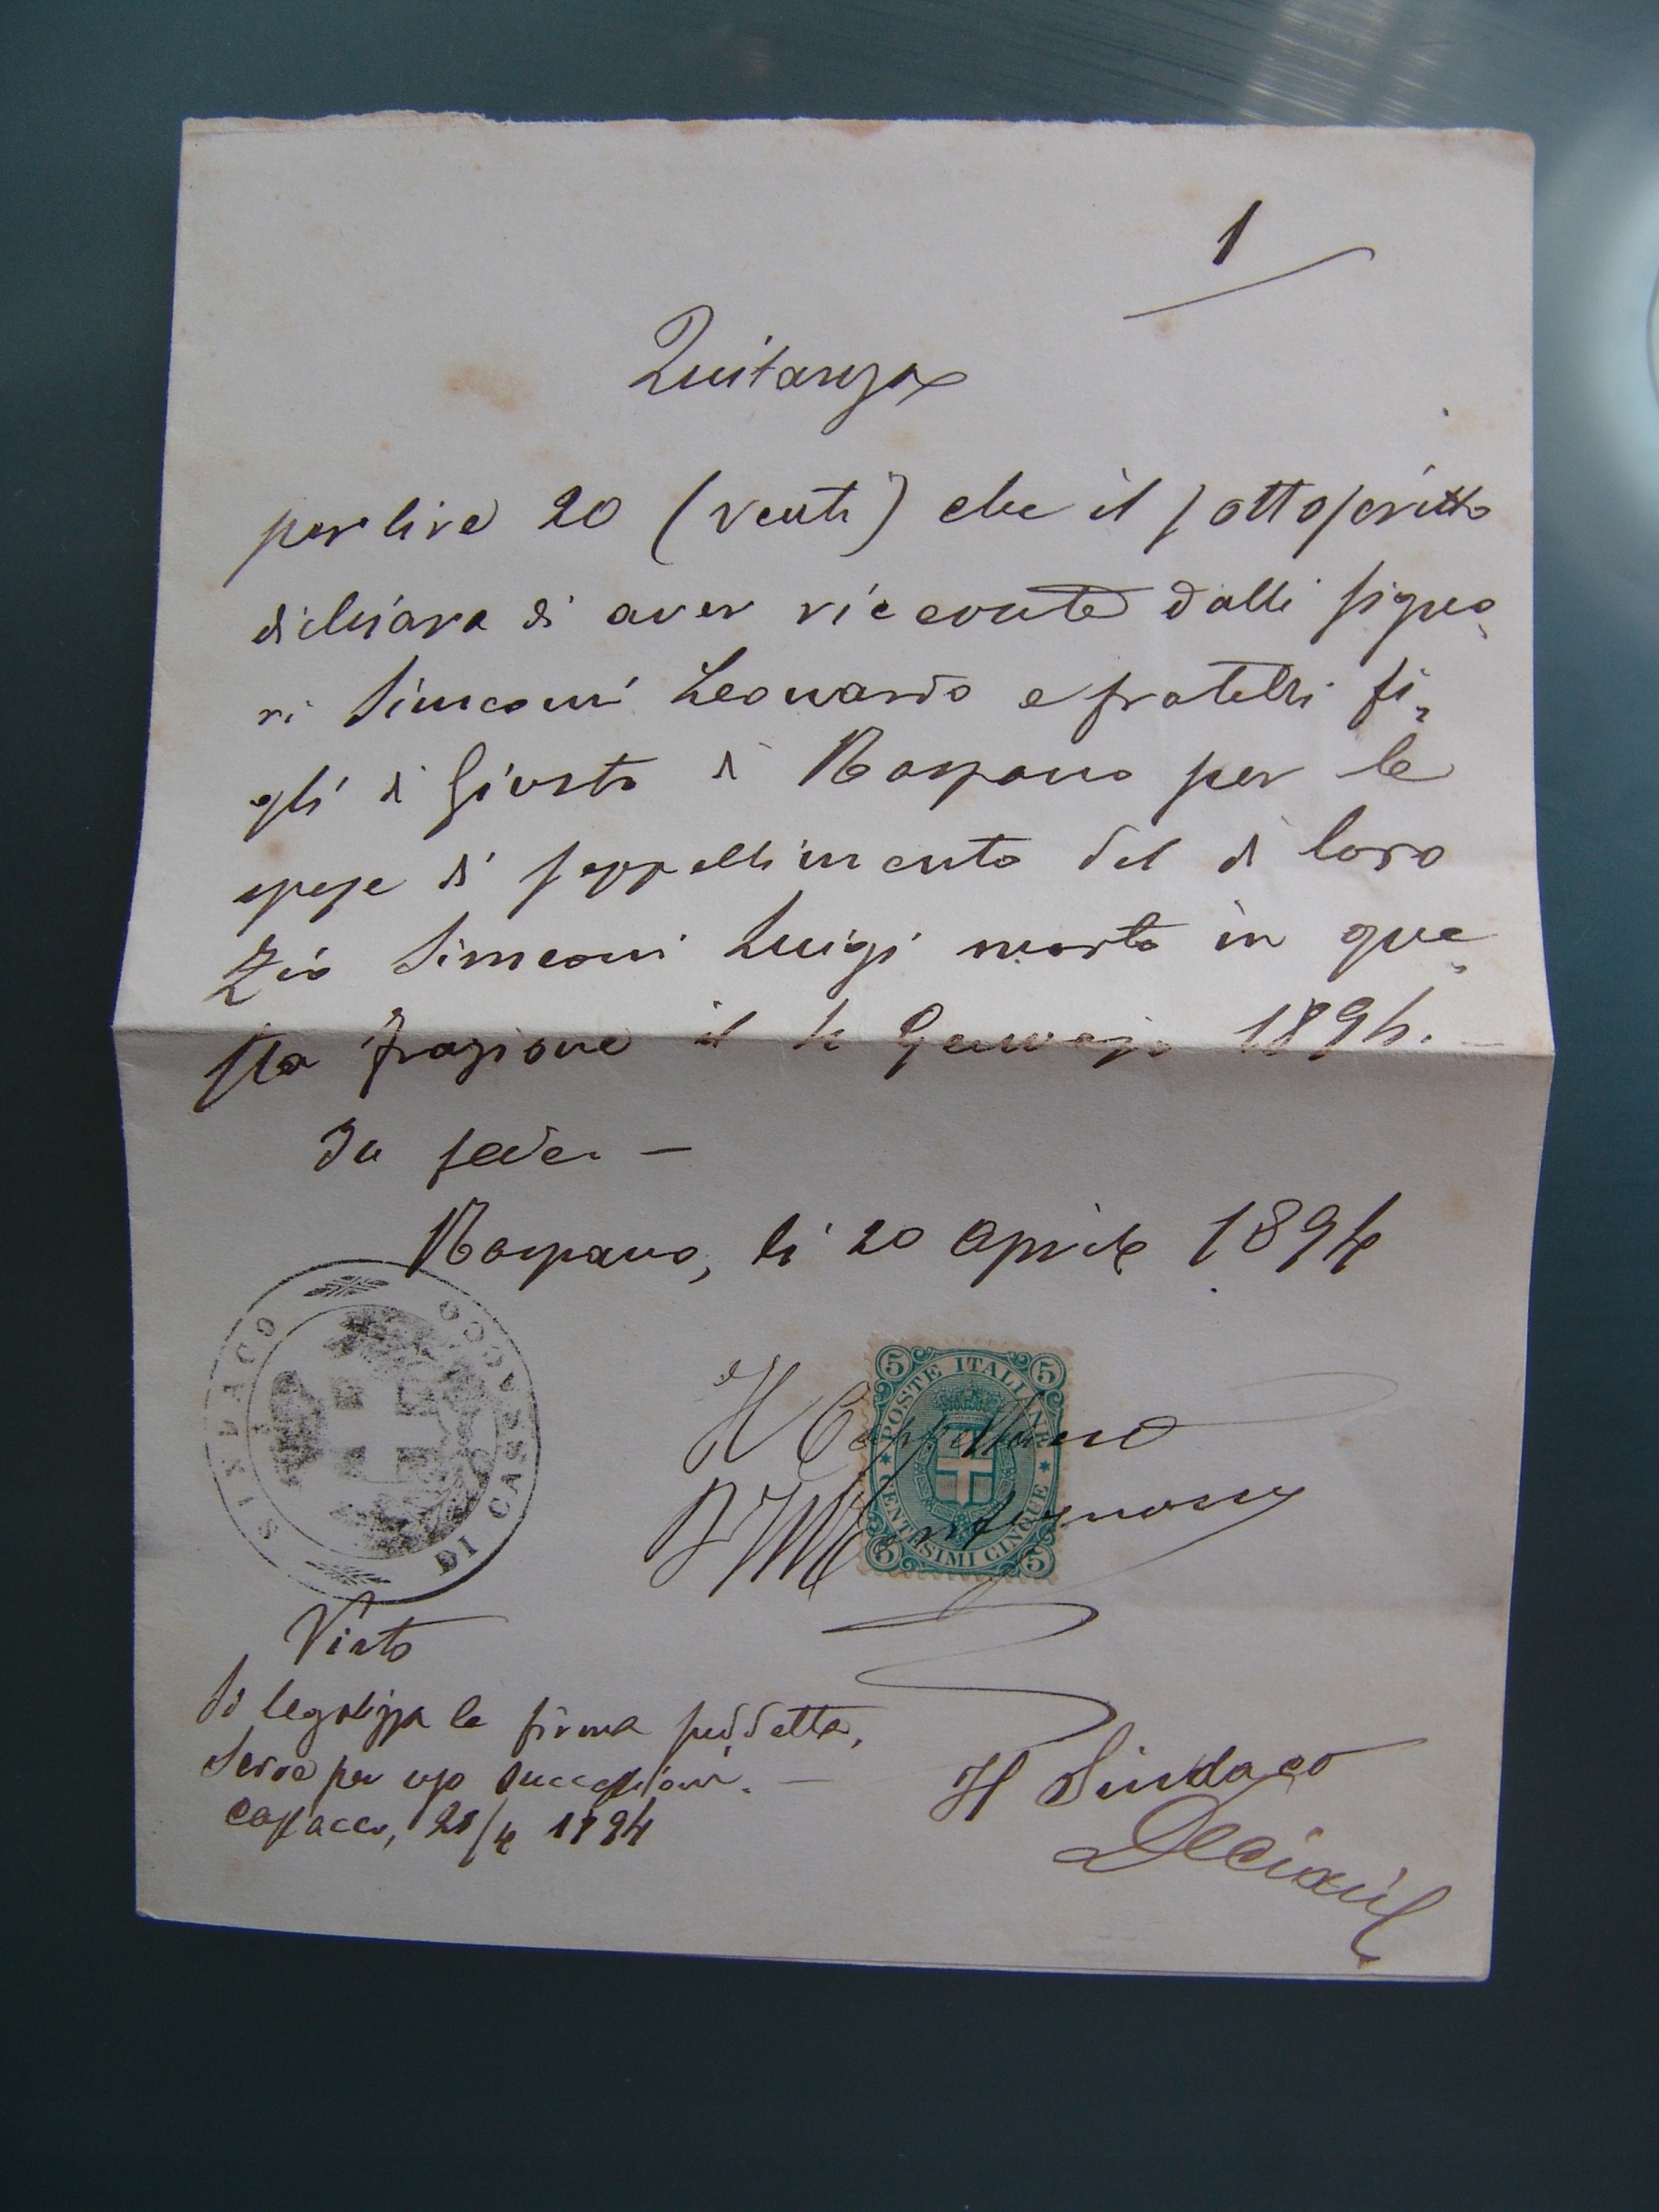 1
Quitanza
per lire 20 (venti) che il sottoscritto
dichiara di aver riccevute dalli signo
ri Simeoni Leonardo e fratelli fi
gli di Giusto di Raspano per le
spese di seppellimento del di loro
Zio Simeoni Luigi morto in que
sta frazione il 4 Gennajo 1894. –
In fede. –
Raspano, li 20 aprile 1894
SINDACO DI CASSACCO
5 5
POSTE ITALIANE
CENTESIMI CINQUE
5 5
Il Cappellano
Visto
Si legalizza la firma suddetta,
Serve per uso successioni. –
Cassacco, 21/4 1894
Il Sindaco